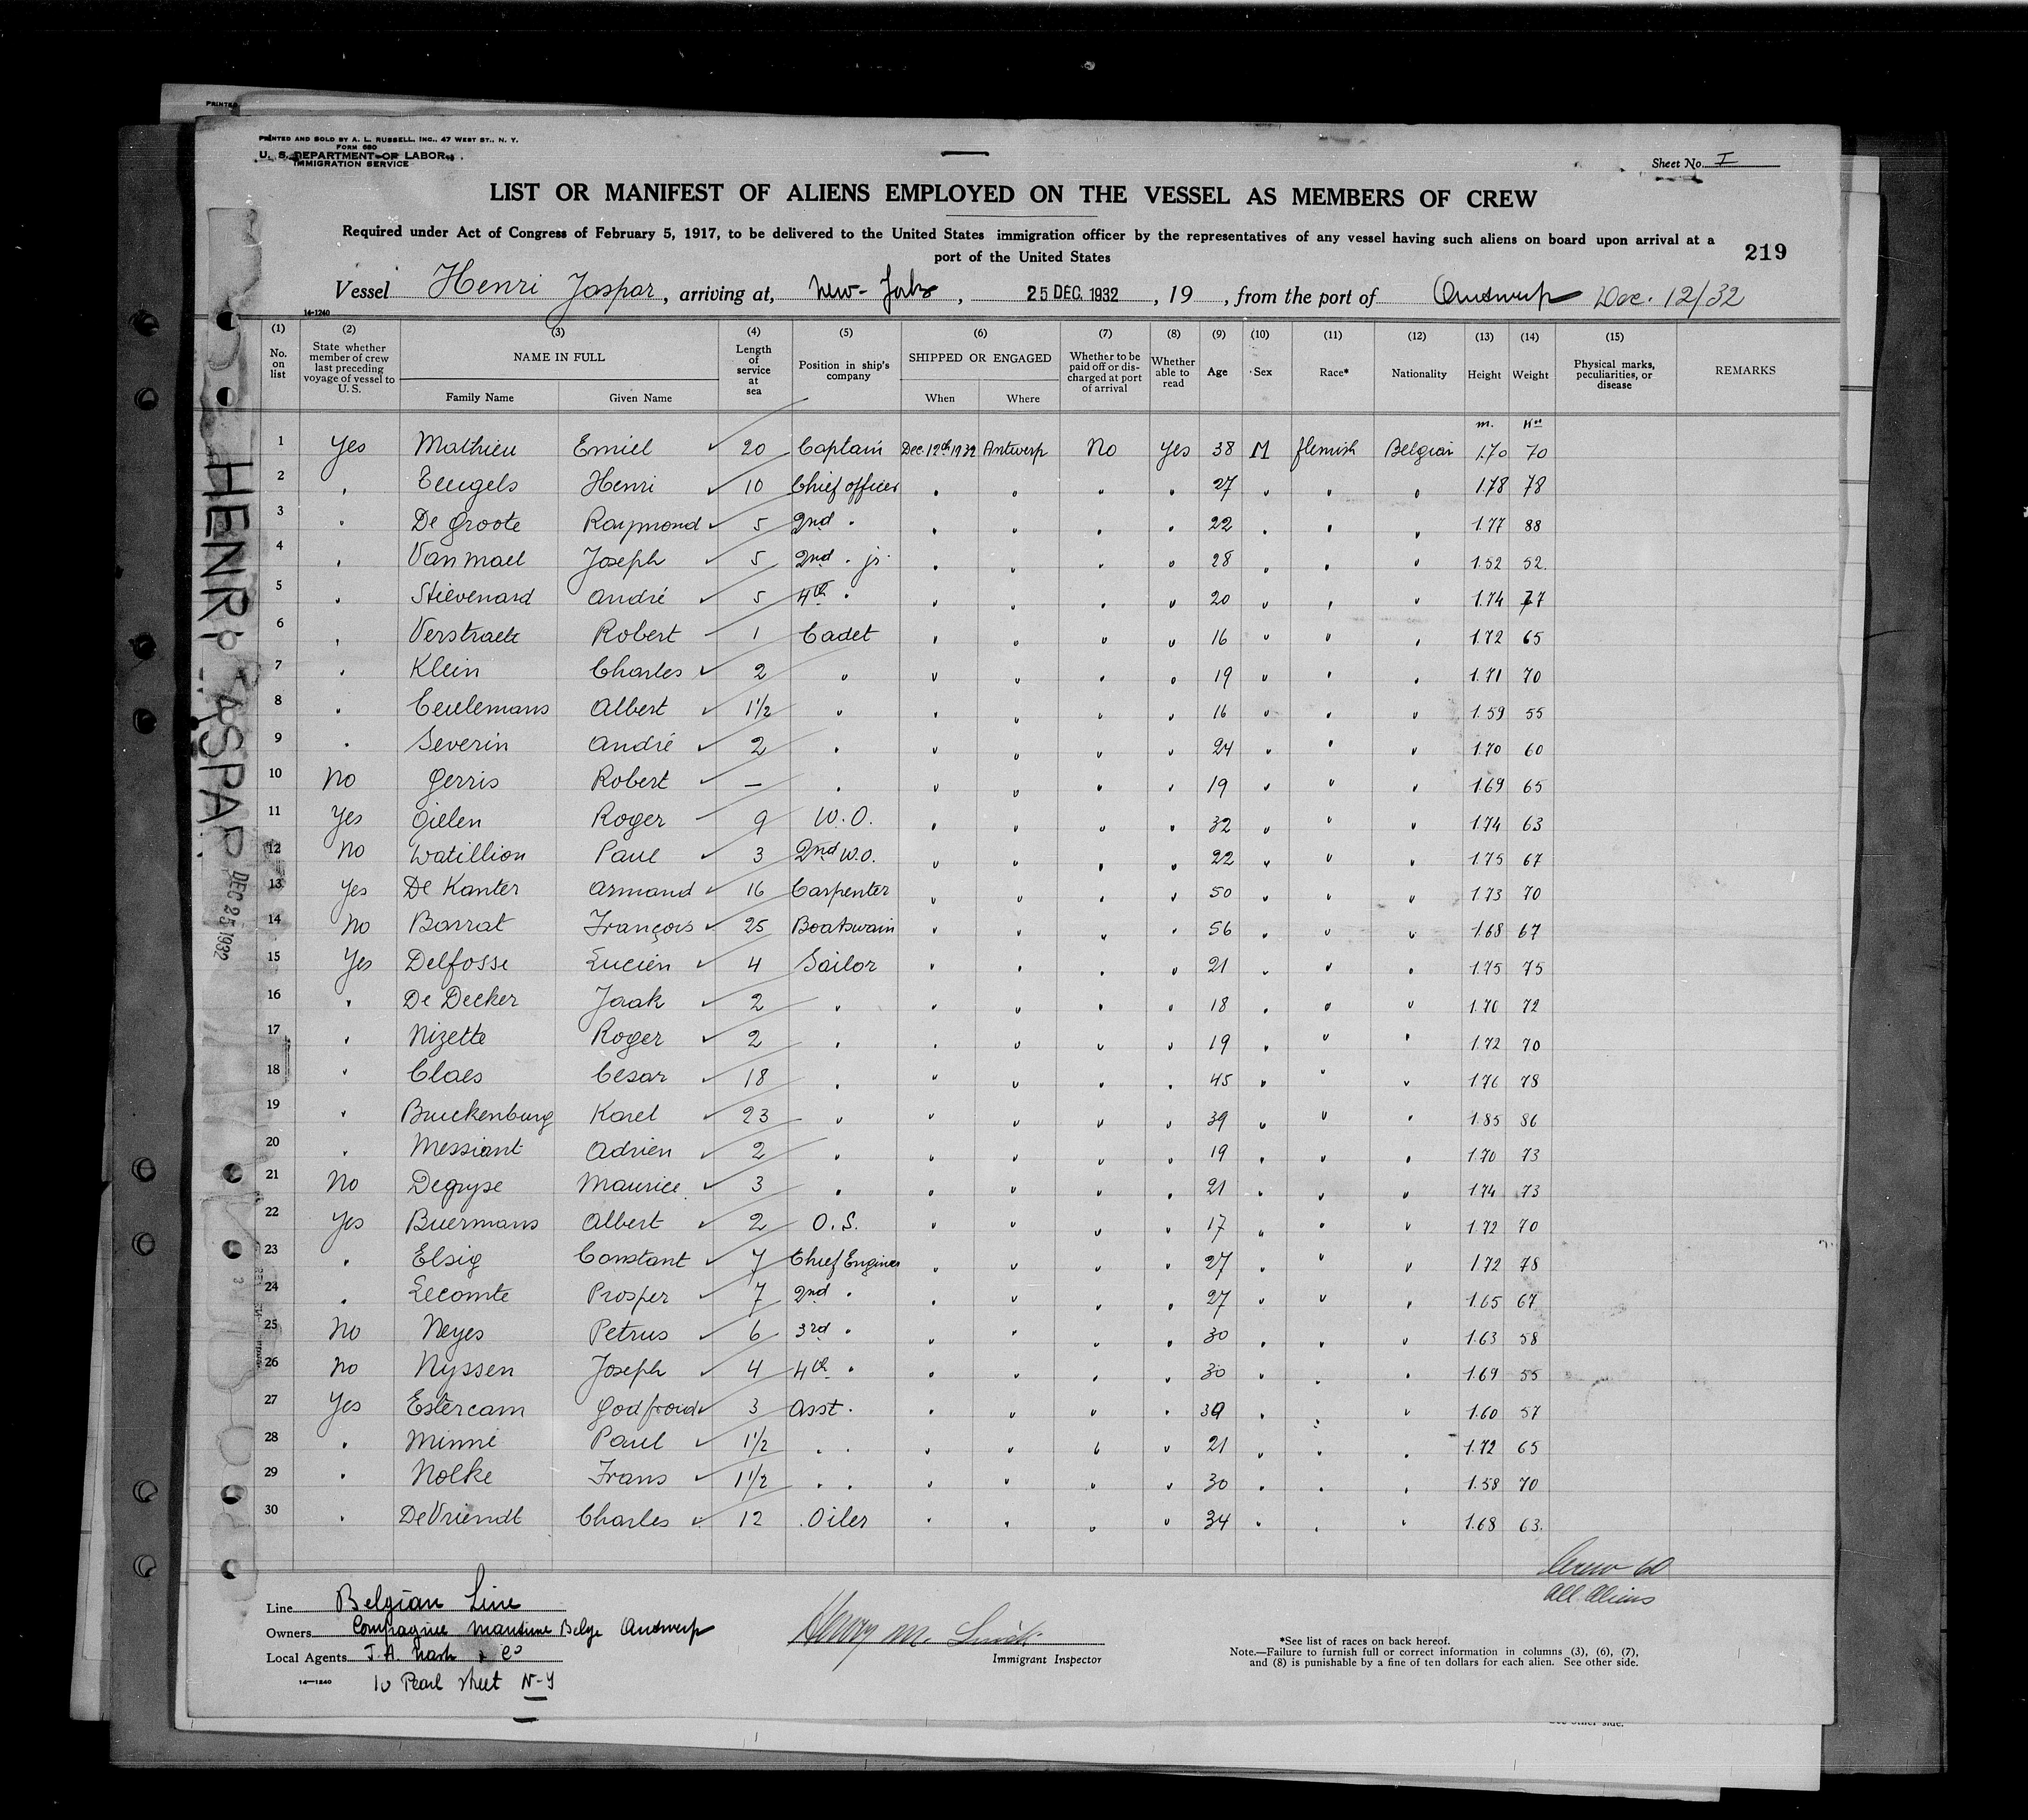 PRINTED
PRINTED AND SOLD BY A. L. RUSSELL, INC., 47 WEST ST., N. Y.
FORM 680
U. S. DEPARTMENT OF LABOR
IMMIGRATION SERVICE
Sheet No. I
LIST OR MANIFEST OF ALIENS EMPLOYED ON THE VESSEL AS MEMBERS OF CREW
Required under Act of Congress of February 5, 1917, to be delivered to the United States immigration officer by the representatives of any vessel having such aliens on board upon arrival at a
port of the United States
219
Vessel Henri Jaspar, arriving at, New-York, 25 DEC. 1932, 19 , from the port of Antwerp Dec. 12/32
14-1240
(1) (2) (3) (4) (5) (6) (7) (8) (9) (10) (11) (12) (13) (14) (15)
No. on list State whether member of crew last preceding voyage of vessel to U. S. NAME IN FULL Family Name Given Name Length of service at sea Position in ship's company SHIPPED OR ENGAGED When Where Whether to be paid off or discharged at port of arrival Whether able to read Age Sex Race* Nationality Height Weight Physical marks, peculiarities, or disease REMARKS
m. Kos
1 Yes Mathieu Emiel ✓ 20 Captain Dec. 12th 1932 Antwerp No Yes 38 M flemish Belgian 1.70 70
2 " Teugels Henri ✓ 10 Chief officer " " " " 27 " " " 1.78 78
3 " De Groote Raymond ✓ 5 2nd " " " " " 22 " " " 1.77 88
4 " Van mael Joseph ✓ 5 2nd " jr. " " " " 28 " " " 1.52 52
5 " Stievenard André ✓ 5 4th " " " " " 20 " " " 1.74 77
6 " Verstraete Robert ✓ 1 Cadet " " " " 16 " " " 1.72 65
7 " Klein Charles ✓ 2 " " " " " 19 " " " 1.71 70
8 " Ceulemans Albert ✓ 1 1/2 " " " " " 16 " " " 1.59 55
9 " Severin André ✓ 2 " " " " " 24 " " " 1.70 60
10 No Gerris Robert ✓ — " " " " " 19 " " " 1.69 65
11 Yes Gielen Roger ✓ 9 W. O. " " " " 32 " " " 1.74 63
12 No Watillion Paul ✓ 3 2nd W.O. " " " " 22 " " " 1.75 67
13 Yes De Kanter Armand ✓ 16 Carpenter " " " " 50 " " " 1.73 70
14 No Barrat François ✓ 25 Boatswain " " " " 56 " " " 1.68 67
15 Yes Delfosse Lucien ✓ 4 Sailor " " " " 21 " " " 1.75 75
16 " De Decker Jaak ✓ 2 " " " " " 18 " " " 1.70 72
17 " Nizette Roger ✓ 2 " " " " " 19 " " " 1.72 70
18 " Claes Cesar ✓ 18 " " " " " 45 " " " 1.76 78
19 " Bruckenburg Karel ✓ 23 " " " " " 39 " " " 1.85 86
20 " Messiant Adrien ✓ 2 " " " " " 19 " " " 1.70 73
21 No Degryse Maurice ✓ 3 " " " " " 21 " " " 1.74 73
22 Yes Buermans Albert ✓ 2 O. S. " " " " 17 " " " 1.72 70
23 " Elsig Constant ✓ 7 Chief Engineer " " " " 27 " " " 1.72 78
24 " Lecomte Prosper ✓ 7 2nd " " " " " 27 " " " 1.65 67
25 No Neyes Petrus ✓ 6 3rd " " " " " 30 " " " 1.63 58
26 No Nyssen Joseph ✓ 4 4th " " " " " 30 " " " 1.69 55
27 Yes Estercam Godfroid ✓ 3 Asst. " " " " 39 " " " 1.60 57
28 " Minne Paul ✓ 1 1/2 " " " " " " 21 " " " 1.72 65
29 " Nolke Frans ✓ 1 1/2 " " " " " " 30 " " " 1.58 70
30 " De Vriendt Charles ✓ 12 Oiler " " " " 34 " " " 1.68 63
Crew 60
All Aliens
Line Belgian Line
Owners Compagnie Maritime Belge Antwerp
Local Agents J. A. Nash & Co
10 Pearl street N-Y
14-1240
Henry M.
Immigrant Inspector
*See list of races on back hereof.
Note.—Failure to furnish full or correct information in columns (3), (6), (7),
and (8) is punishable by a fine of ten dollars for each alien. See other side.
See other side.
HENRI JASPAR
DEC 25 1932